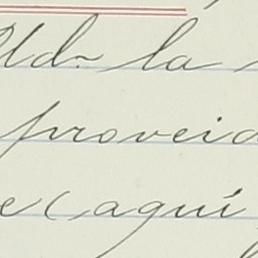 Ud. la
proveid
e (aquí